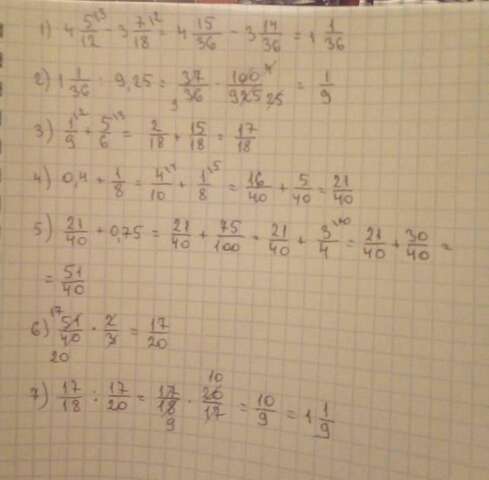 1) 4 5/12 - 3 7/18 = 4 15/36 - 3 14/36 = 1 1/36
2) 1 1/36 : 9,25 = 37/36 · 100/925 = 1/9
3) 1/9 + 5/6 = 2/18 + 15/18 = 17/18
4) 0,4 + 1/8 = 4/10 + 1/8 = 16/40 + 5/40 = 21/40
5) 21/40 + 0,75 = 21/40 + 75/100 = 21/40 + 3/4 = 21/40 + 30/40 =
= 51/40
6) 51/40 · 2/3 = 17/20
7) 17/18 : 17/20 = 17/18 · 20/17 = 10/9 = 1 1/9